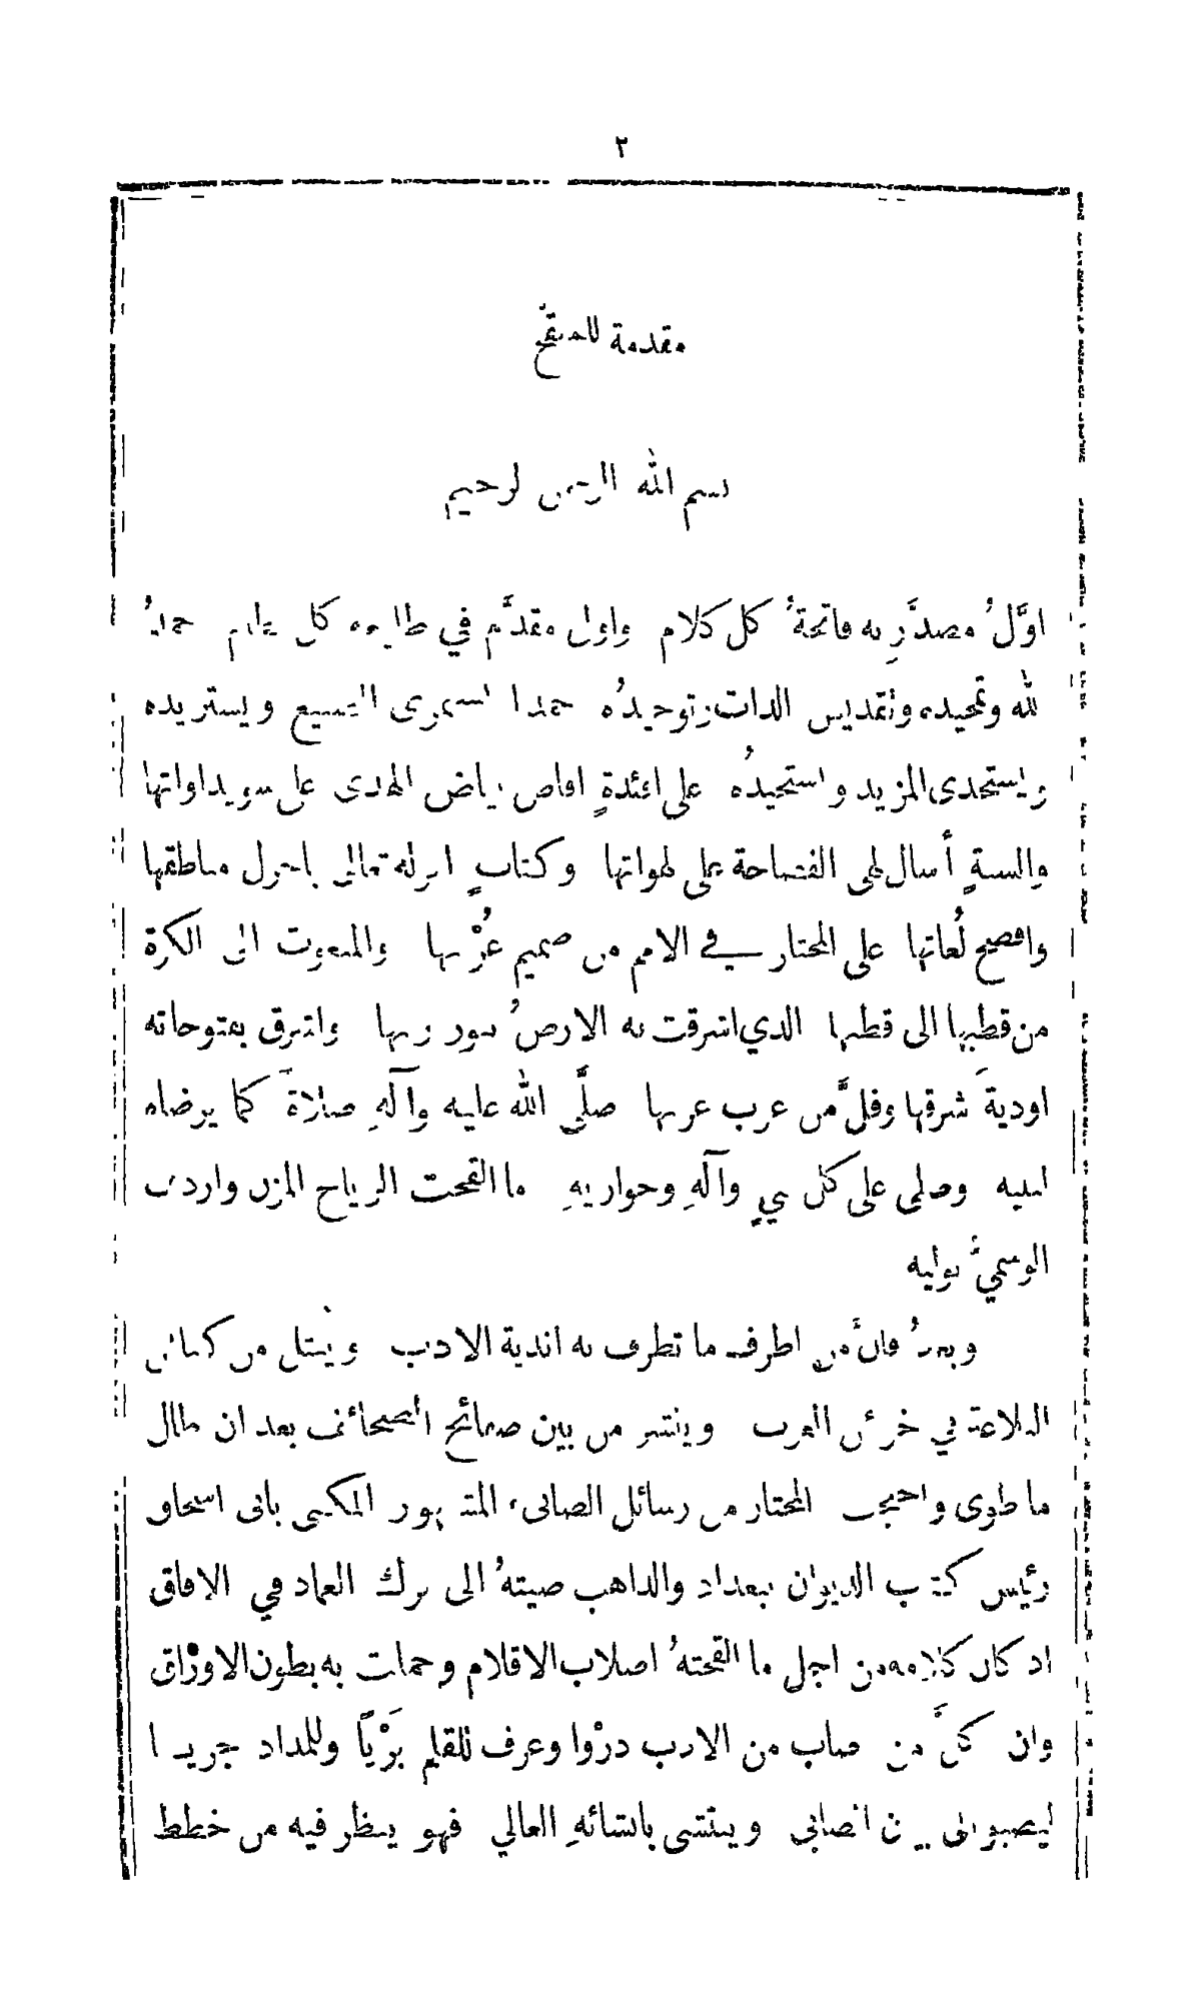 ٢
مقدمة للمنقّح
بسم الله الرحمن الرحيم
اوَّلُ مصدَّرٍ به فاتحةُ كل كلام واول مقدَّم في كل حمدُ
لله وتمجيده وتقديس الذات وتوحيدُه حمدا السميع ويستزيده
ويستجدى المزيد و على افئدةٍ افاض رياض الهدى على سويداواتها
والسنةٍ أسال لهى الفصاحة على لهواتها وكتابٍ انزله تعالى باجزل مناطقها
وافصح لُغاتها على المختار في الامم من صميم عُرْبها والمبعوت الى الكرة
من قطبها الى قطبها الذي اشرقت به الارضُ بنور ربها واشرق بفتوحاته
اوديةَ شرقها وفلَّ من غرب غربها صلَّى الله عليه وآلهِ صلاةً كما يرضاه
لنبيه وصلى على كل نبيٍ وآلهِ وحواريهِ ما القحت الرياح المزن واردف
الوسميُّ بوليه
وبعدُ فانَّ من اطرف ما تطرف به اندية الادب وينتثل من كنائن
البلاغة في خزائن العرب وينشر من بين صفائح الصحائف بعد ان طال
ما طوى واحتجب المختار من رسائل الصابىء المشهور المكنى بابى اسحاق
رئيس كتاب الديوان ببغداد والذاهب صيتهُ الى برك الغماد في الافاق
اذ كان كلامه من اجل ما القحتهُ اصلاب الاقلام وحملت به بطون الاوراق
وان كلَّ من صاب من الادب دروْا وعرف للقلم بَرْياً وللمداد جريـا
ليصبو الى الصابي وينتشى بانشائهِ العالي فهو ينظر فيه من خطط